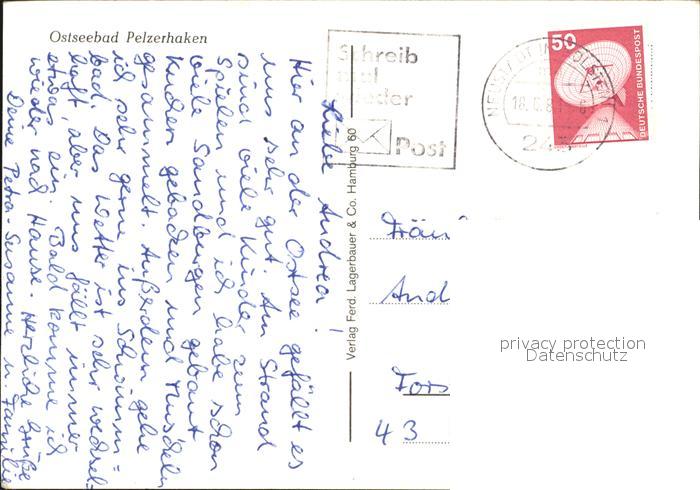 Ostseebad Pelzerhaken
Liebe Andrea!
Hier an der Ostsee gefällt es
uns sehr gut. Am Strand
sind viele Kinder zum
Spielen und ich habe schon
viele Sandburgen gebaut
Kinder gebaden und Muscheln
gesammelt. Außerdem gehe
ich sehr gerne ins Schwimm=
bad. Das Wetter ist sehr wechsel-
haft, aber uns fällt immer
etwas ein. Bald komme ich
wieder nach Hause. Herzliche Grüße
Deine Petra-Susanne u. Familie
Verlag Ferd. Lagerbauer & Co. Hamburg 60
Schreib
mal
wieder
Post
50
DEUTSCHE BUNDESPOST
NEUSTADT IN HOLSTEIN 1
Fräu
And
Fors
43
privacy protection
Datenschutz